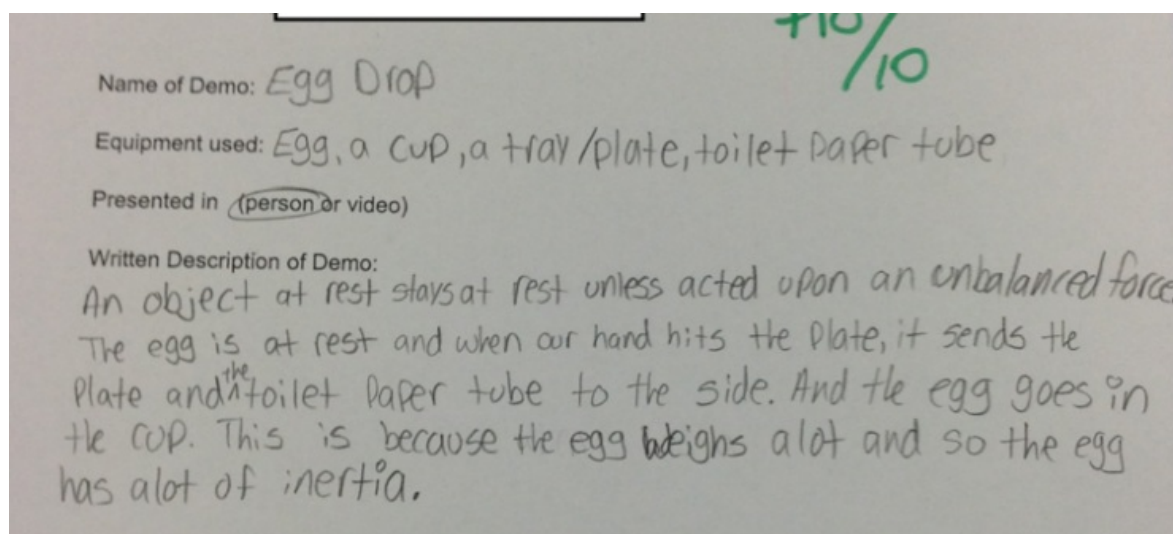 +10/10
Name of Demo: Egg Drop
Equipment used: Egg, a cup, a tray/plate, toilet paper tube
Presented in (person or video)
Written Description of Demo:
An object at rest stays at rest unless acted upon an unbalanced force
The egg is at rest and when our hand hits the plate, it sends the
plate and the toilet paper tube to the side. And the egg goes in
the cup. This is because the egg weighs alot and so the egg
has alot of inertia.